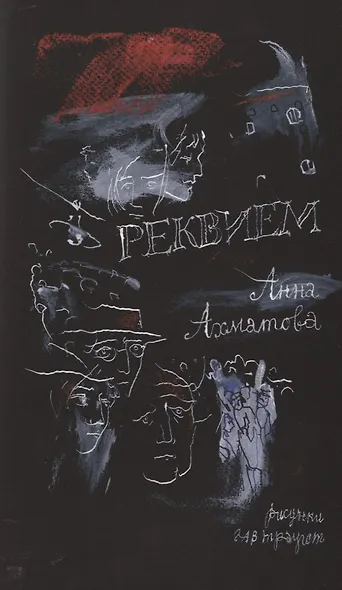 РЕКВИЕМ
Анна
Ахматова
рисунки
ГАВ Траугот